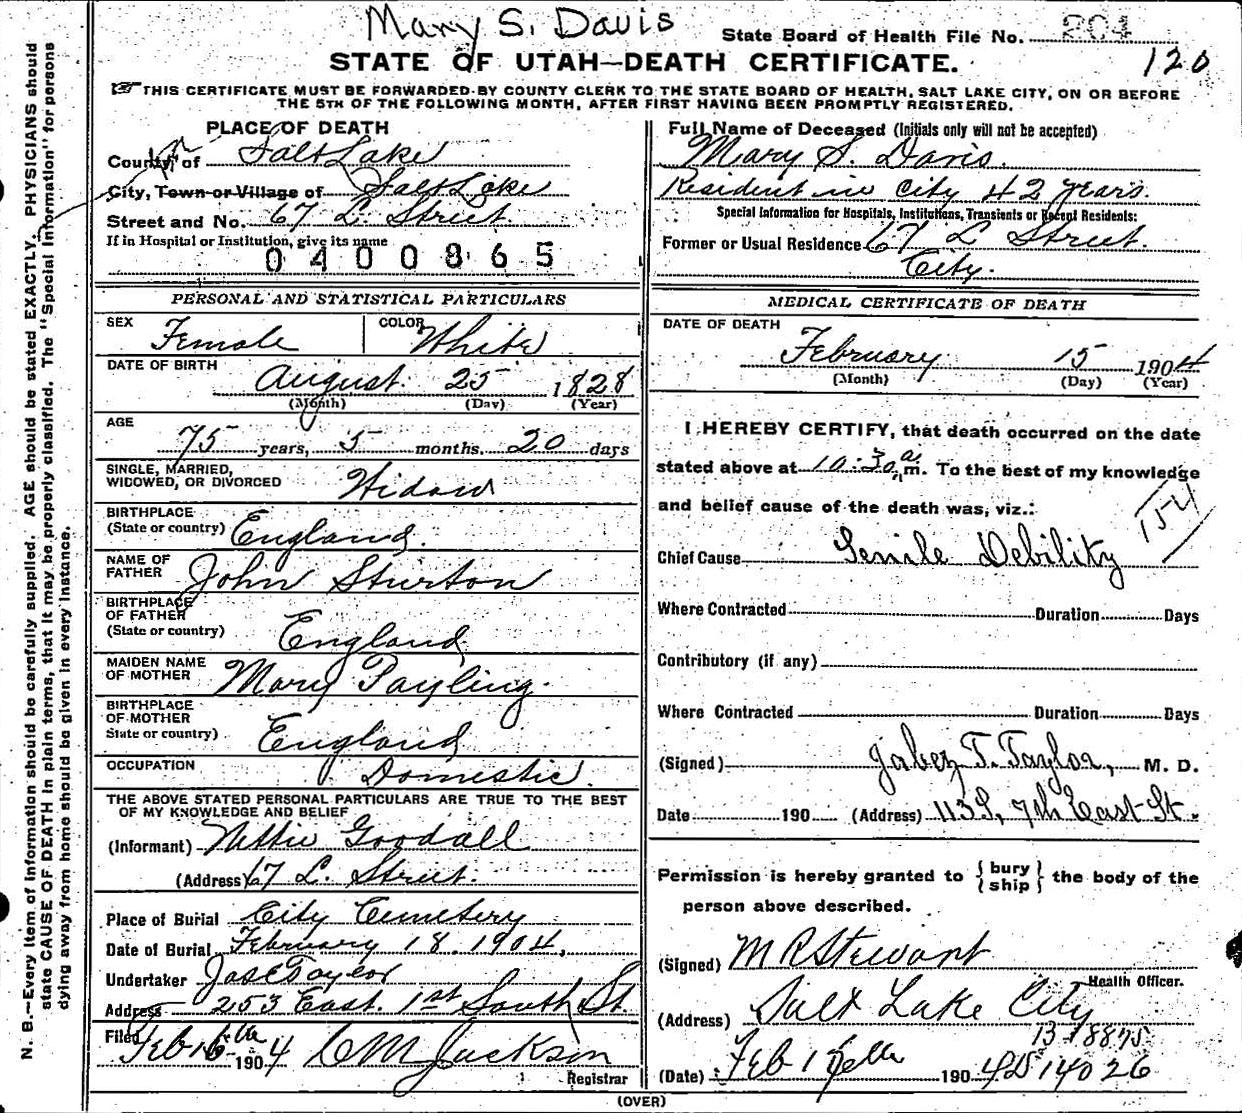 Mary S. Davis
State Board of Health File No. 204
120
STATE OF UTAH—DEATH CERTIFICATE.
THIS CERTIFICATE MUST BE FORWARDED BY COUNTY CLERK TO THE STATE BOARD OF HEALTH, SALT LAKE CITY, ON OR BEFORE
THE 5TH OF THE FOLLOWING MONTH, AFTER FIRST HAVING BEEN PROMPTLY REGISTERED.
N. B.—Every item of information should be carefully supplied. AGE should be stated EXACTLY. PHYSICIANS should
state CAUSE OF DEATH in plain terms, that it may be properly classified. The "Special Information" for persons
dying away from home should be given in every instance.
PLACE OF DEATH
County of Salt Lake
City, Town or Village of Salt Lake
Street and No. 67 L. Street
If in Hospital or Institution, give its name
0400865
PERSONAL AND STATISTICAL PARTICULARS
SEX Female COLOR White
DATE OF BIRTH
August 25 1828
(Month) (Day) (Year)
AGE
75 years, 5 months, 20 days
SINGLE, MARRIED,
WIDOWED, OR DIVORCED Widow
BIRTHPLACE
(State or country) England.
NAME OF
FATHER John Sturton
BIRTHPLACE
OF FATHER
(State or country) England
MAIDEN NAME
OF MOTHER Mary Payling.
BIRTHPLACE
OF MOTHER
State or country) England
OCCUPATION Domestic.
THE ABOVE STATED PERSONAL PARTICULARS ARE TRUE TO THE BEST
OF MY KNOWLEDGE AND BELIEF
(Informant) Nettie Goodall
(Address) 67 L. Street.
Place of Burial City Cemetery
Date of Burial February 18. 1904,
Undertaker Jos E Taylor
Address 253 East. 1st South St.
Filed Feb 16th 1904 C M Jackson
Registrar
Full Name of Deceased (Initials only will not be accepted)
Mary S. Davis.
Resident in City 42 years.
Special Information for Hospitals, Institutions, Transients or Recent Residents:
Former or Usual Residence 67 L Street.
City.
MEDICAL CERTIFICATE OF DEATH
DATE OF DEATH
February 15 1904
(Month) (Day) (Year)
I HEREBY CERTIFY, that death occurred on the date
stated above at 10.30 a m. To the best of my knowledge
and belief cause of the death was, viz.:
154
Chief Cause Senile Debility
Where Contracted Duration Days
Contributory (if any)
Where Contracted Duration Days
(Signed) Jabez T. Taylor, M. D.
Date 190 (Address) 113 S, 7th East St.
Permission is hereby granted to { bury ship } the body of the
person above described.
(Signed) M R Stewart
Health Officer.
(Address) Salt Lake City
(Date) Feb 1904
(OVER)